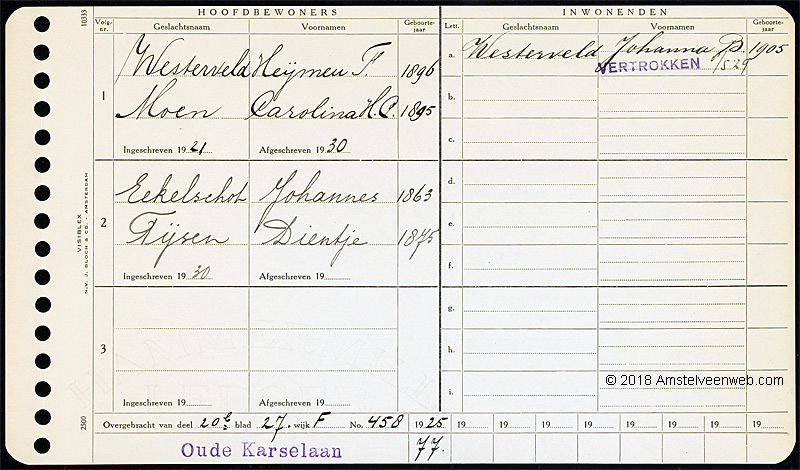 HOOFDBEWONERS
INWONENDEN
10333
Volg-nr.
Geslachtsnaam
Voornamen
Geboorte-jaar
Lett.
Geslachtsnaam
Voornamen
Geboorte-jaar
1
Westerveld Heijmen F. 1896
Moen Carolina H.C. 1895
Ingeschreven 1921 Afgeschreven 1930
2
Eekelschot Johannes 1863
Tijsen Dientje 1875
Ingeschreven 1930 Afgeschreven 19
3
Ingeschreven 19 Afgeschreven 19
a. Westerveld Johanna B. 1905
VERTROKKEN
b.
c.
d.
e.
f.
g.
h.
i.
VISIBLEX
N.V. J. BLOCH & CO. - AMSTERDAM
2500
© 2018 Amstelveenweb.com
Overgebracht van deel 20e blad 27. wijk F No. 458 1925 19 19 19 19 19 19 19 19
Oude Karselaan
77.